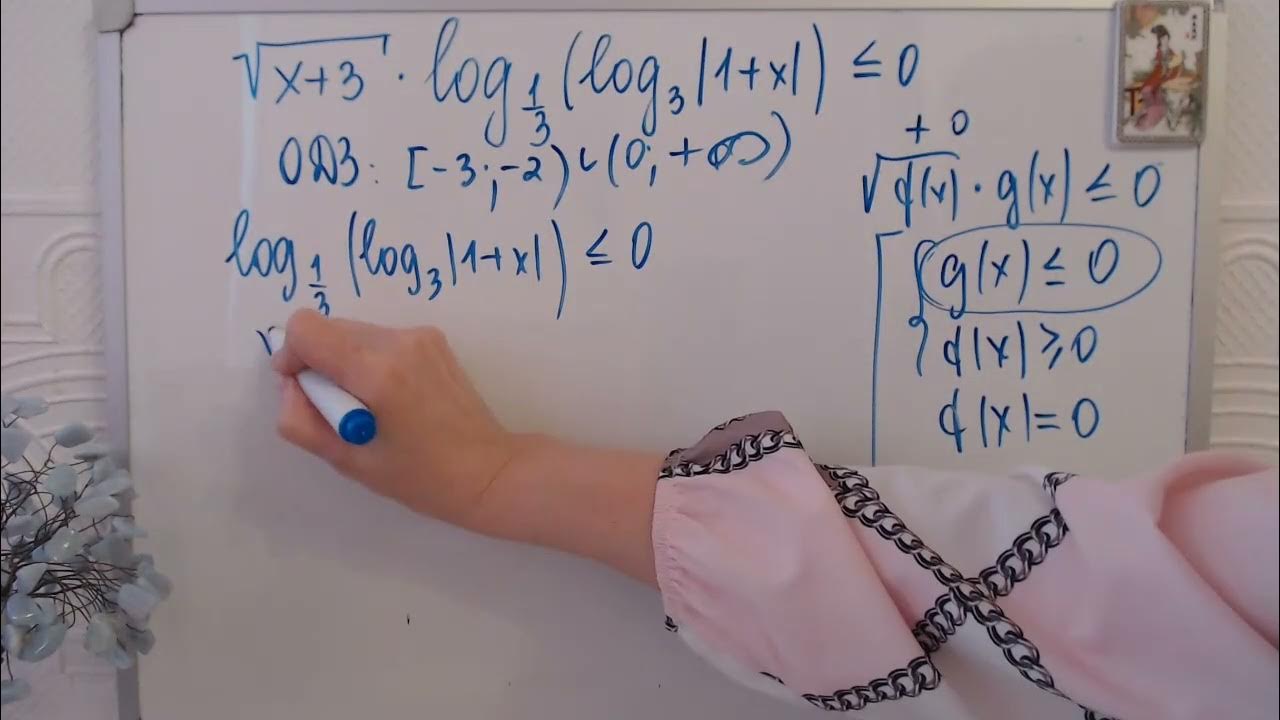 √(x+3) · log_{1/3}(log_3|1+x|) ≤ 0
ОДЗ: [-3;-2)∪(0;+∞)
log_{1/3}(log_3|1+x|) ≤ 0
+ 0
√f(x) · g(x) ≤ 0
g(x) ≤ 0
f(x) ≥ 0
f(x) = 0